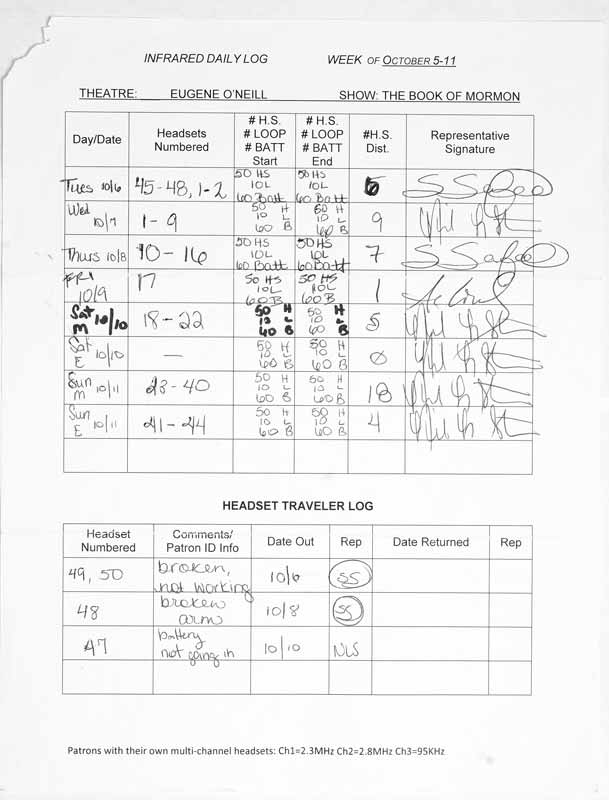 INFRARED DAILY LOG WEEK OF OCTOBER 5-11
THEATRE: EUGENE O'NEILL SHOW: THE BOOK OF MORMON
Day/Date Headsets Numbered # H.S. # LOOP # BATT Start # H.S. # LOOP # BATT End #H.S. Dist. Representative Signature
Tues 10/6 45-48, 1-2 50 HS 10L 60 Batt 50 HS 10L 60 Batt 6
Wed 10/7 1-9 50 H 10 L 60 B 50 H 10 L 60 B 9
Thurs 10/8 10-16 50 HS 10L 60 Batt 50 HS 10L 60 Batt 7
FRI 10/9 17 50 HS 10L 60B 50 HS 10L 60B 1
Sat M 10/10 18-22 50 H 10 L 60 B 50 H 10 L 60 B 5
Sat E 10/10 — 50 H 10 L 60 B 50 H 10 L 60 B 0
Sun M 10/11 23-40 50 H 10 L 60 B 50 H 10 L 60 B 18
Sun E 10/11 41-44 50 H 10 L 60 B 50 H 10 L 60 B 4
HEADSET TRAVELER LOG
Headset Numbered Comments/ Patron ID Info Date Out Rep Date Returned Rep
49, 50 broken, not working 10/6 SS
48 broken arm 10/8 SS
47 battery not going in 10/10 NLS
Patrons with their own multi-channel headsets: Ch1=2.3MHz Ch2=2.8MHz Ch3=95KHz